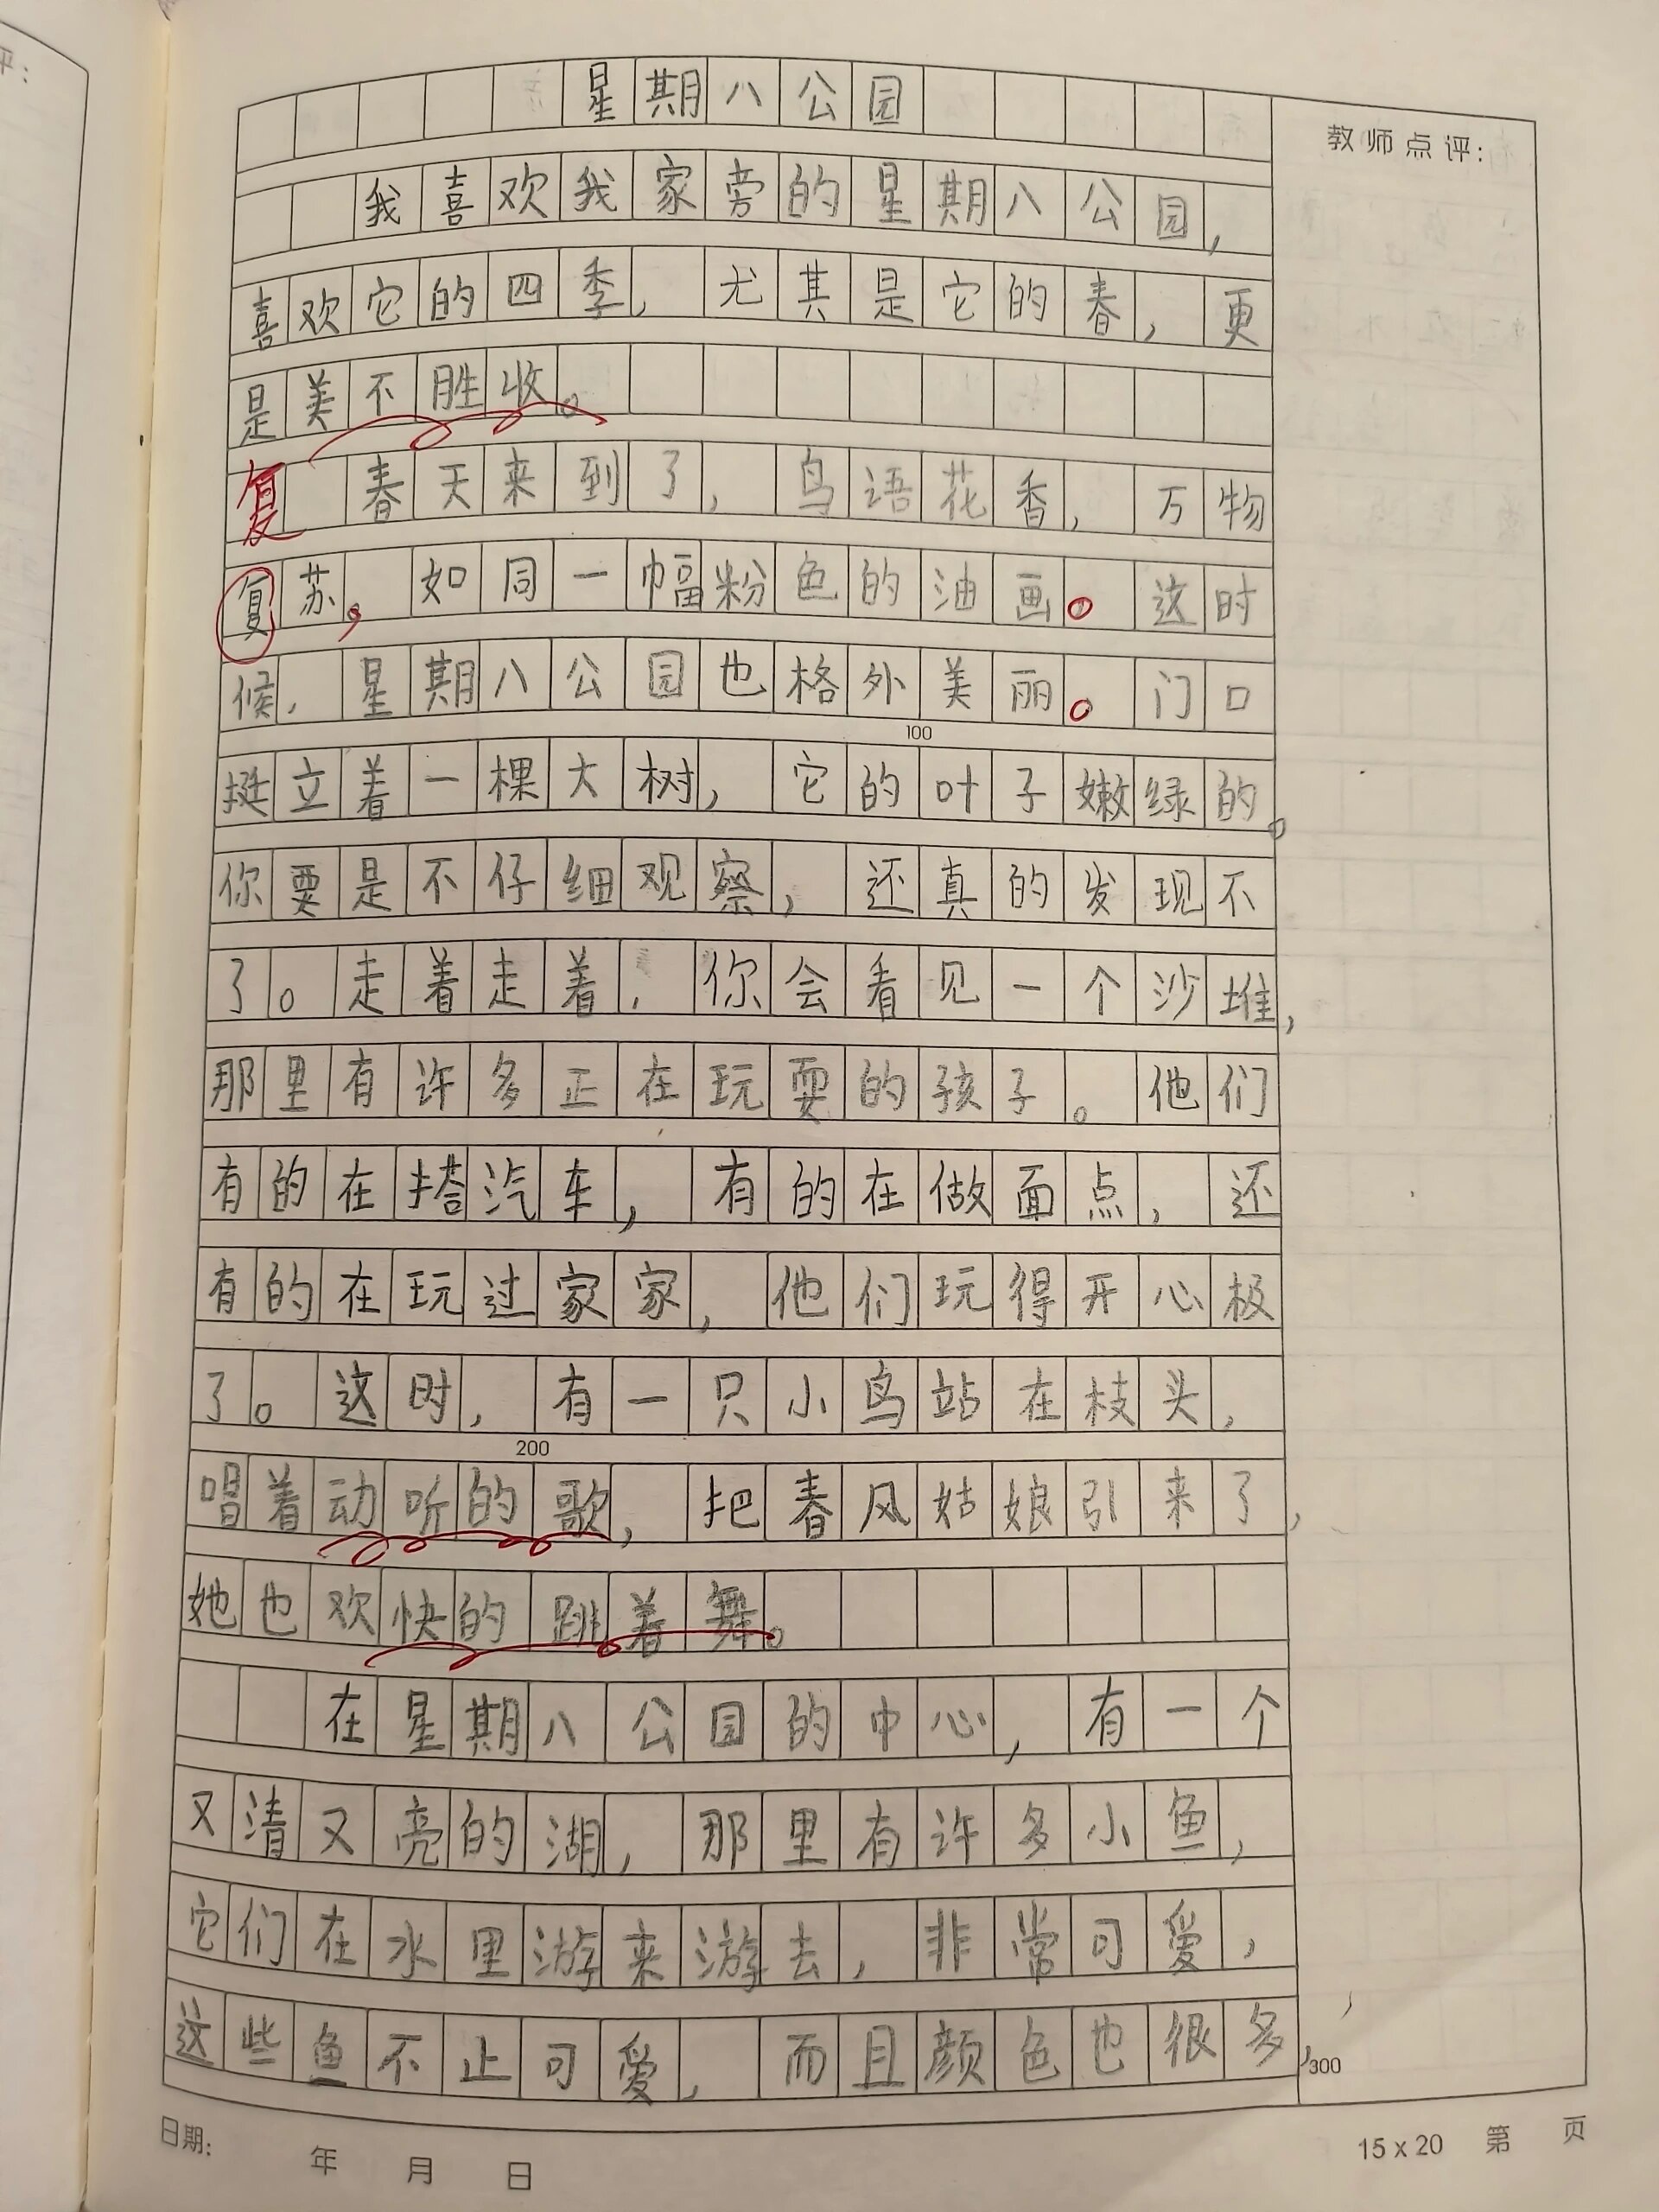 评：
星期八公园
教师点评：
我喜欢我家旁的星期八公园，
喜欢它的四季，尤其是它的春，更
是美不胜收。
复 春天来到了，鸟语花香，万物
复苏，如同一幅粉色的油画。这时
候，星期八公园也格外美丽。门口
100
挺立着一棵大树，它的叶子嫩绿的。
你要是不仔细观察，还真的发现不
了。走着走着，你会看见一个沙堆，
那里有许多正在玩耍的孩子。他们
有的在搭汽车，有的在做面点，还
有的在玩过家家，他们玩得开心极
了。这时，有一只小鸟站在枝头，
200
唱着动听的歌，把春风姑娘引来了，
她也欢快的跳着舞。
在星期八公园的中心，有一个
又清又亮的湖，那里有许多小鱼，
它们在水里游来游去，非常可爱，
这些鱼不止可爱，而且颜色也很多，
300
日期： 年 月 日
15 x 20 第 页